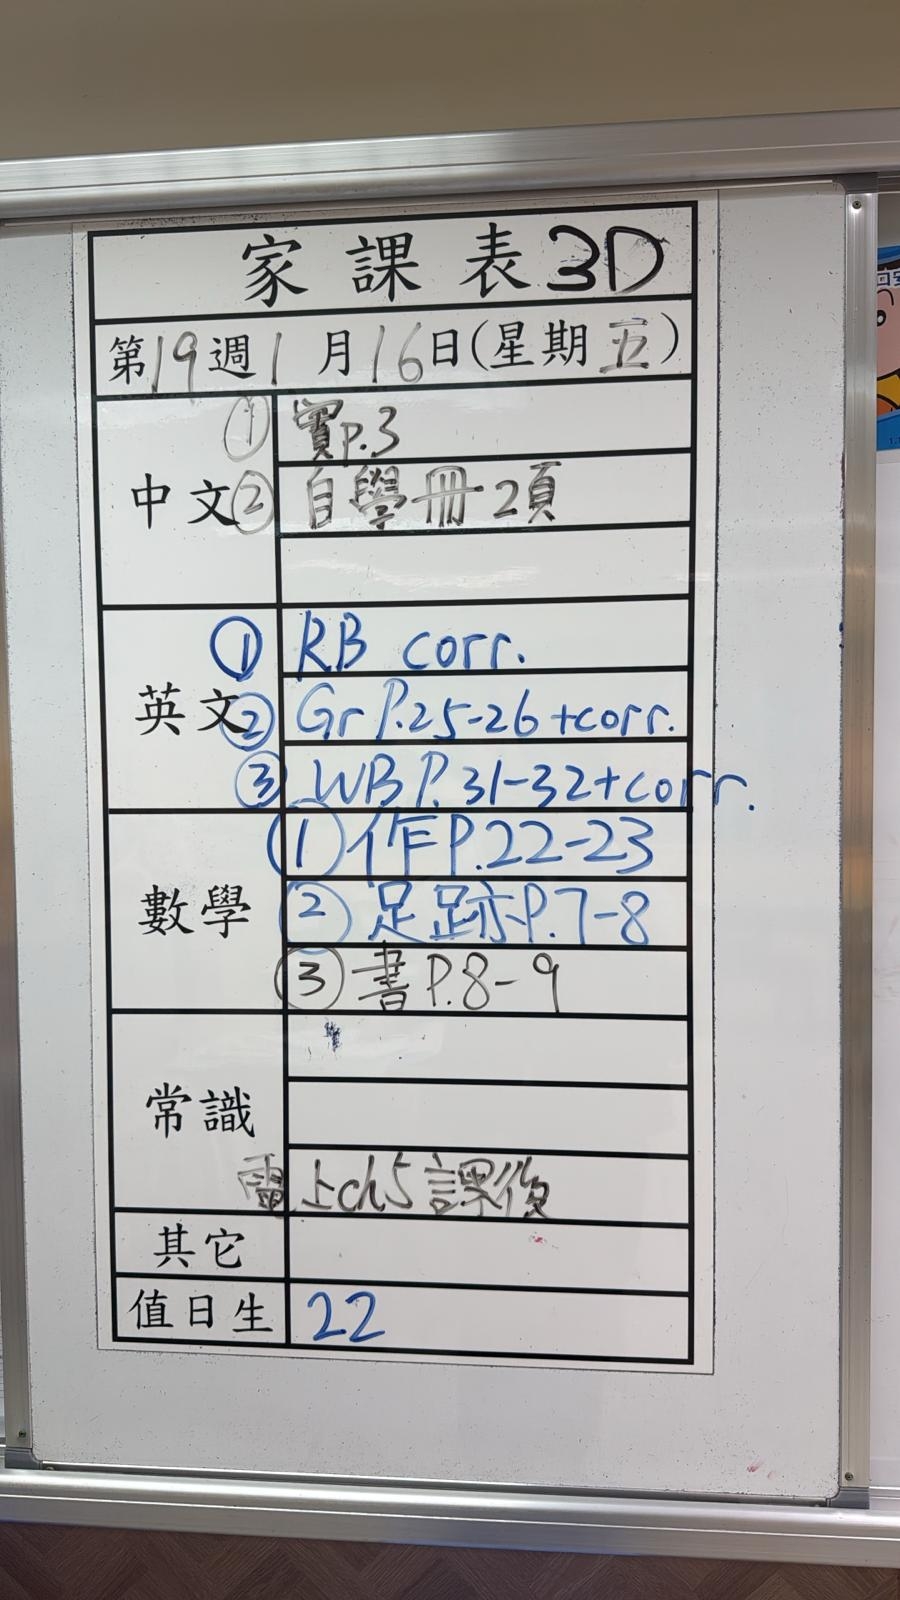 家課表3D
第19週1月16日(星期五)
中文
① 實P.3
② 自學冊2頁
英文
① RB corr.
② Gr P.25-26+corr.
③ WB P.31-32+corr.
數學
① 作P.22-23
② 足跡P.7-8
③ 書P.8-9
常識
電上ch5課後
其它
值日生 22